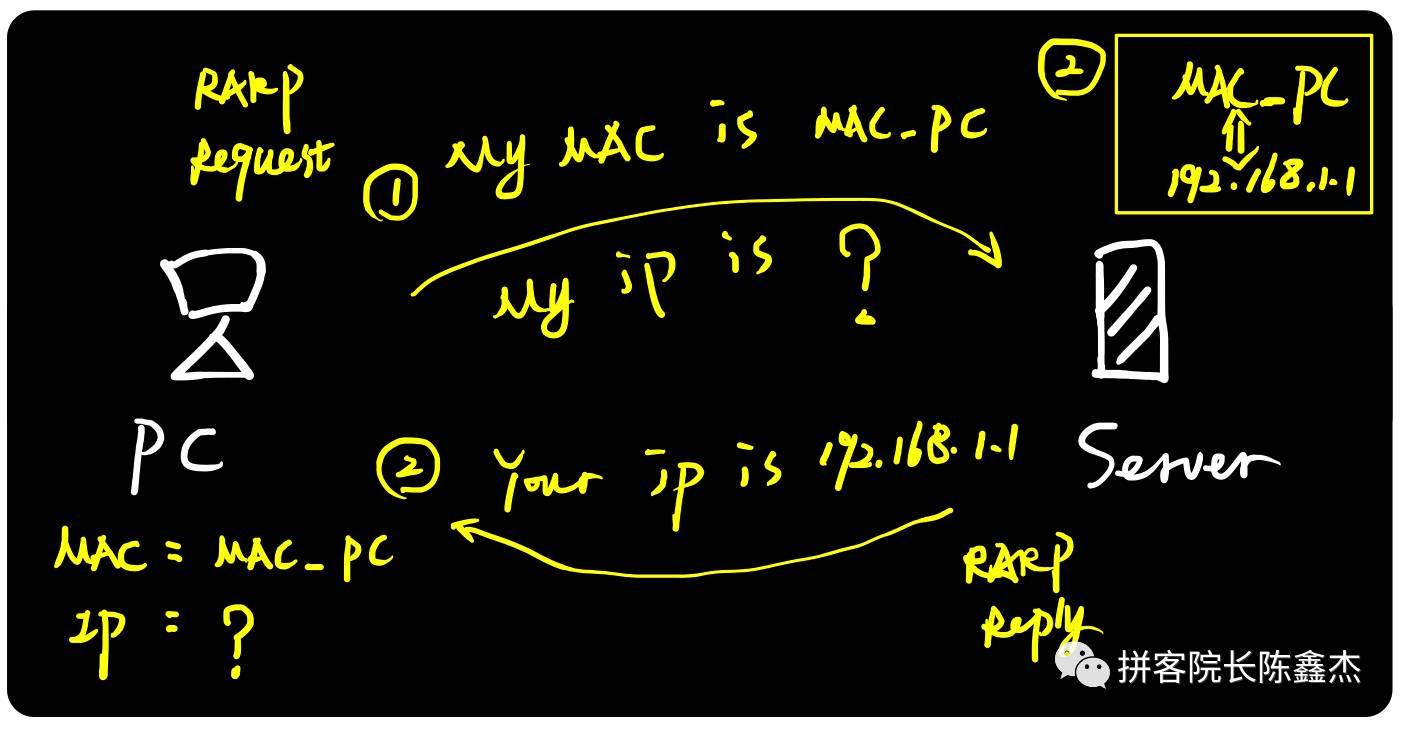 RARP
Request
① My MAC is MAC_PC
My ip is ?
② MAC_PC
192.168.1.1
PC
Server
② Your ip is 192.168.1.1
MAC = MAC_PC
IP = ?
RARP
Reply
拼客院长陈鑫杰